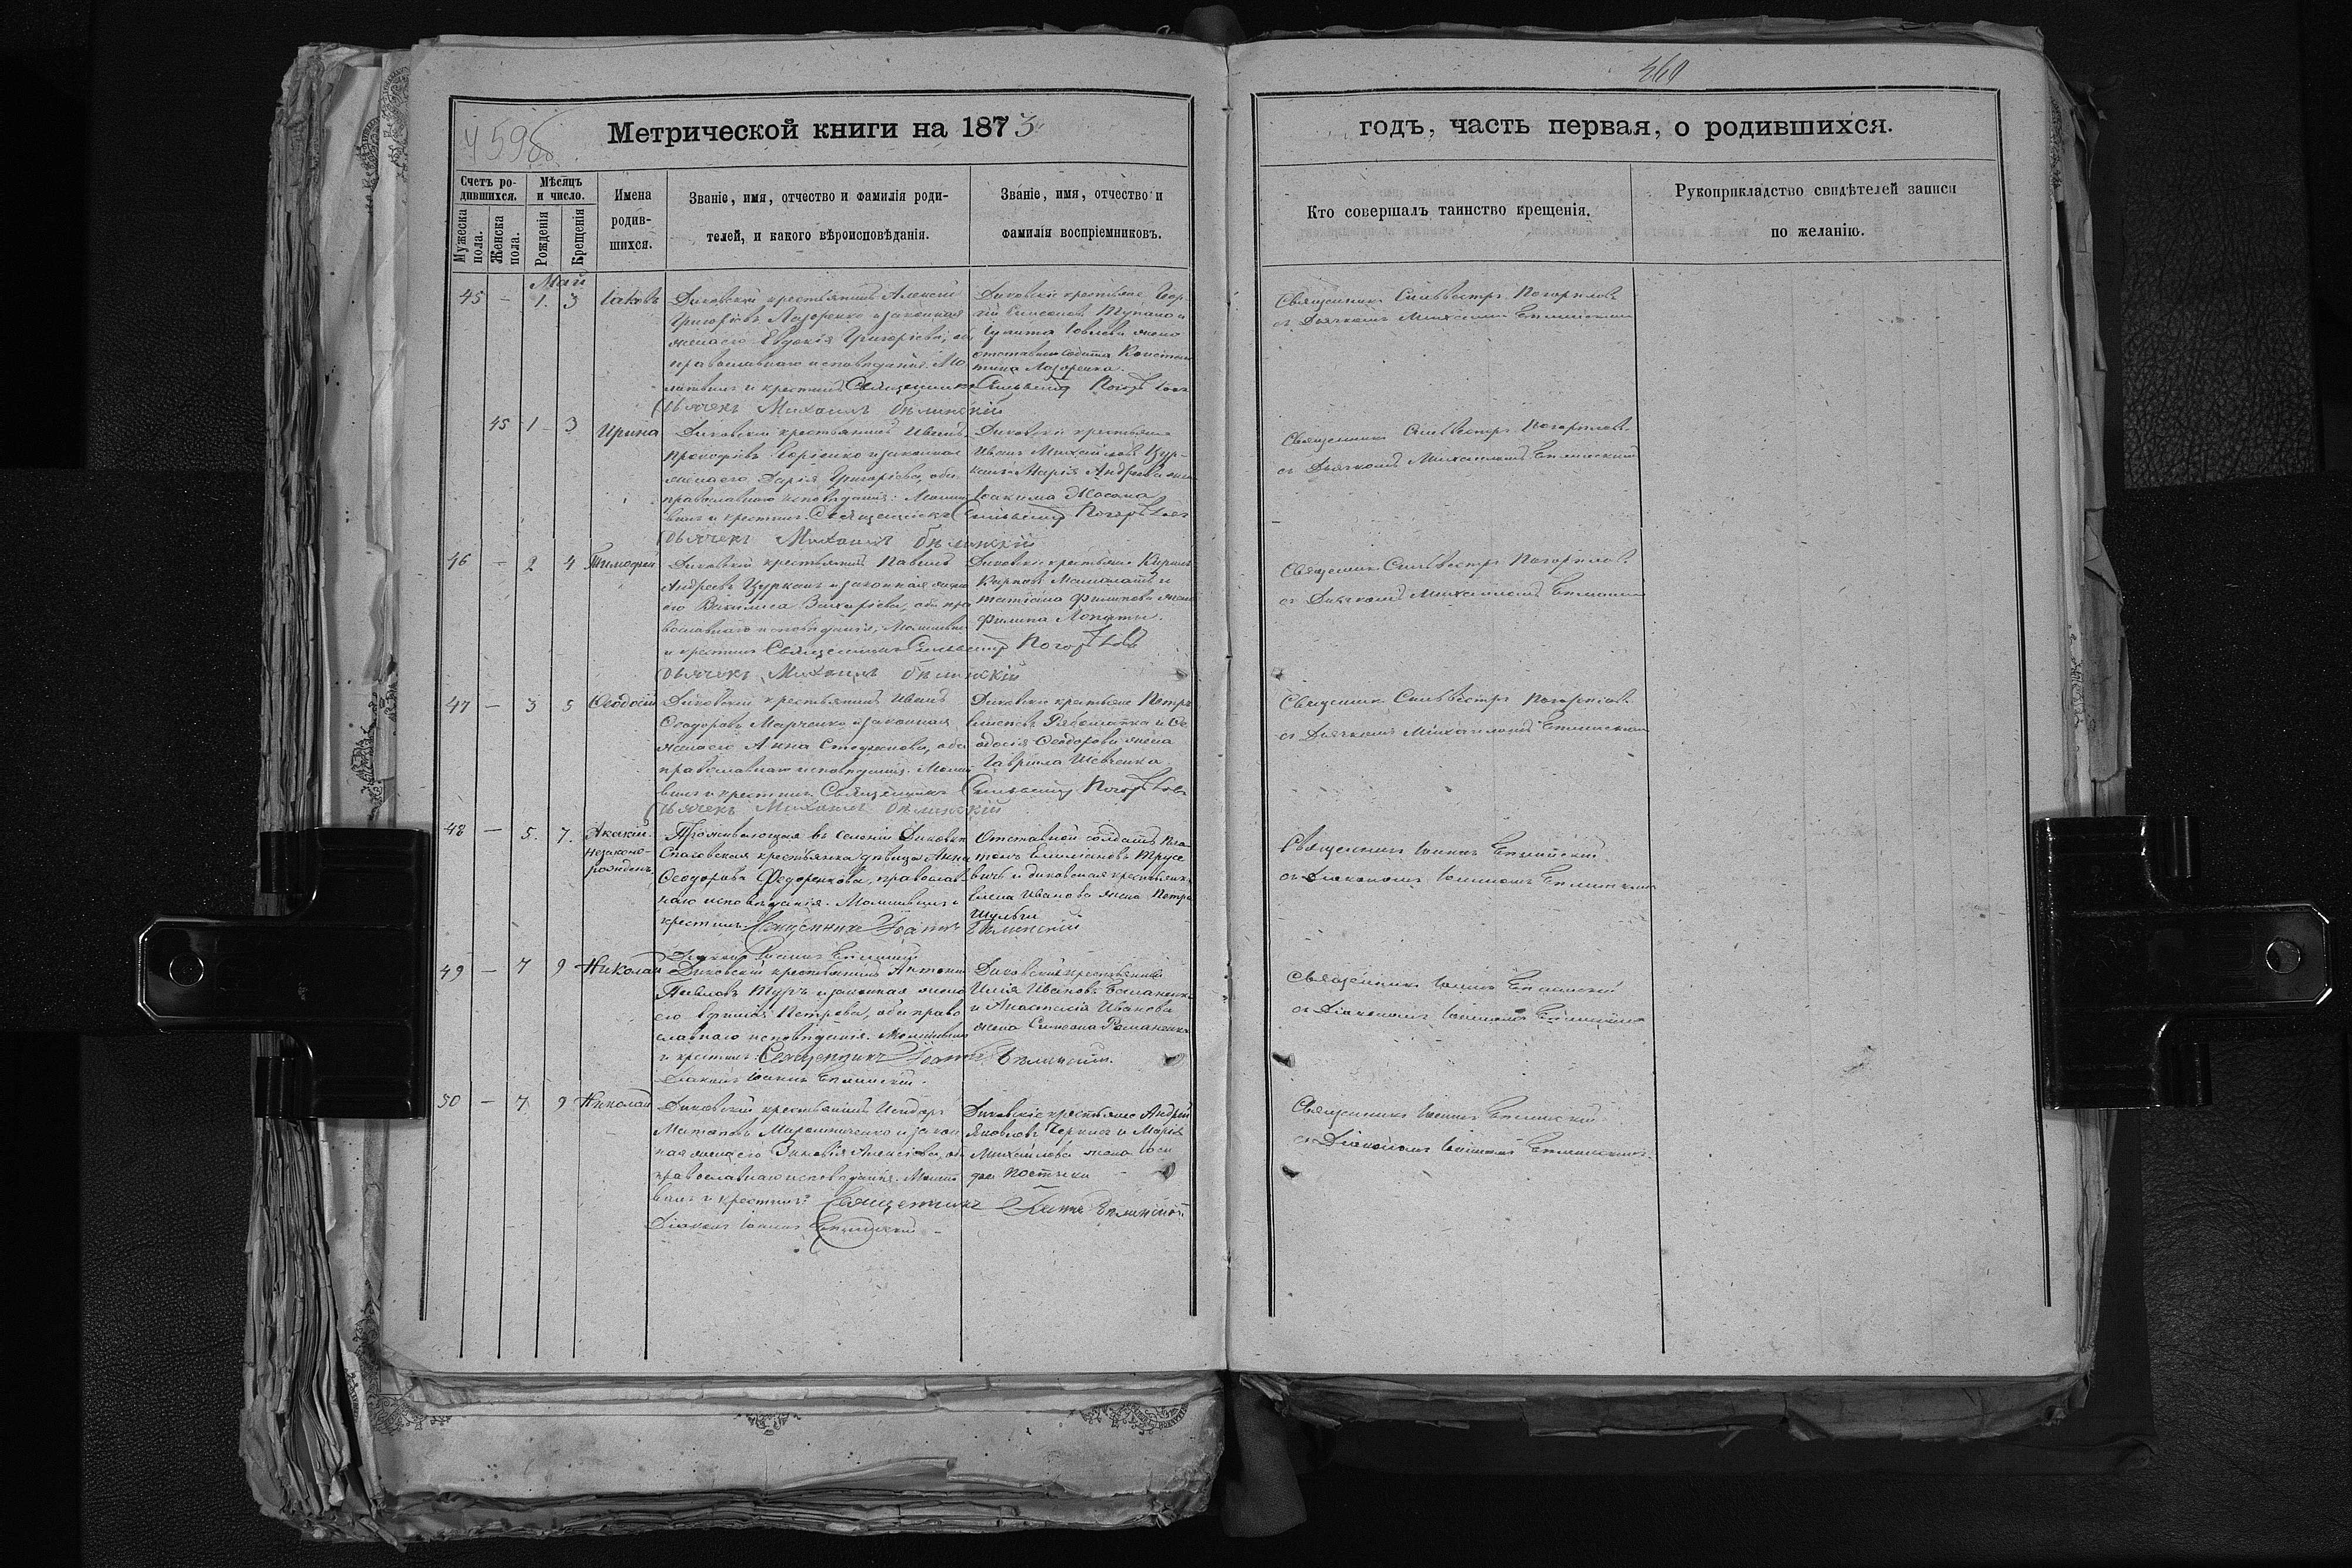 460
459б
Метрической книги на 1873
годъ, часть первая, о родившихся.
Счетъ ро-
дившихся.
Мужеска
пола.
Женска
пола.
Мѣсяцъ
и число.
Рожденія
Крещенія
Имена
родив-
шихся.
Званіе, имя, отчество и фамилія роди-
телей, и какого вѣроисповѣданія.
Званіе, имя, отчество и
фамилія воспріемниковъ.
Кто совершалъ таинство крещенія.
Рукоприкладство свидѣтелей записи
по желанію.
Май
45 – 1. 3 Іаковъ
Диковскій крестьянинъ Алексій
Григоріевъ Лазоренко и законная
жена его Евдокія Григоріева, оба
православнаго исповѣданія. Мо
литвилъ и крестилъ Священникъ
Дьячекъ Михаилъ Бѣлинскій
Диковскіе крестьяне
жена
отставнаго солдата Констан
тина Лазоренка.
Сильвестръ Погорѣловъ
Священникъ Сильвестръ Погорѣловъ
съ Дьячкомъ Михаиломъ Бѣлинскимъ
45 1 – 3 Ирина
Диковскій крестьянинъ Иванъ
Прокофіевъ и законная
жена его Дарія Григоріева, оба
православнаго исповѣданія. Молит
вилъ и крестилъ Священникъ
Дьячекъ Михаилъ Бѣлинскій
Диковскіе крестьяне
Иванъ Михайловъ Цур-
канъ и Марія Андреева жена
Іоакима
Сильвестръ Погорѣловъ
Священникъ Сильвестръ Погорѣловъ
съ Дьячкомъ Михаиломъ Бѣлинскимъ
46 – 2 4 Тимофей
Диковскій крестьянинъ Павелъ
Андреевъ Цурканъ и законная жена
его Василиса Захаріева, оба пра
вославнаго исповѣданія, Молитвилъ
и крестилъ Священникъ Сильвестръ Погорѣловъ
Дьячекъ Михаилъ Бѣлинскій
Диковскіе крестьяне
Татіана Филипова жена
Филипа Лопаты.
Священникъ Сильвестръ Погорѣловъ
съ Дьячкомъ Михаиломъ
47 – 3 5 Ѳеодосій
Диковскій крестьянинъ Иванъ
Ѳеодоровъ Марченко и законная
жена его Анна оба
православнаго исповѣданія. Молит
вилъ и крестилъ Священникъ
Дьячекъ Михаилъ Бѣлинскій
Диковскіе крестьяне Петръ
и Ѳе
одосія Ѳеодорова жена
Гавріила Шевченка
Сильвестръ Погорѣловъ
Священникъ Сильвестръ Погорѣловъ
съ Дьячкомъ Михаиломъ Бѣлинскимъ
48 – 5. 7. Акакій.
незаконо-
рожденъ.
Проживающая въ селеніи Диковкѣ
Спасовская крестьянка дѣвица Анна
Ѳеодорова Федоренкова, православ
наго исповѣданія. Молитвилъ и
крестилъ Священникъ Іоаннъ Бѣлинскій
Діаконъ Іоаннъ Бѣлинскій
Отставной солдатъ Пла
тонъ Емиліановъ Трусе
вичъ и диковская крестьянка
Елена Иванова жена Петра
Шульги
Священникъ Іоаннъ Бѣлинскій
съ Діакономъ Іоанномъ Бѣлинскимъ
49 – 7 9 Николай
Диковскій крестьянинъ Антоній
Павловъ и законная жена
его Петрова, оба право
славнаго исповѣданія. Молитвилъ
и крестилъ Священникъ Іоаннъ Бѣлинскій.
Діаконъ Іоаннъ Бѣлинскій.
Диковскій крестьянинъ
Илія Ивановъ
и Анастасія Иванова
жена Симеона Романенка
Священникъ Іоаннъ Бѣлинскій
съ Діакономъ Іоанномъ Бѣлинскимъ
50 – 7 9 Николай
Диковскій крестьянинъ Исидоръ
Мирошниченко и закон
ная жена его Зиновія Алексіева, оба
православнаго исповѣданія. Молит
вилъ и крестилъ Священникъ Іоаннъ Бѣлинскій
Діаконъ Іоаннъ Бѣлинскій
Диковскіе крестьяне Андрей
Яковлевъ и Марія
Михайлова жена Іоси
фа
Священникъ Іоаннъ Бѣлинскій
съ Діакономъ Іоанномъ Бѣлинскимъ